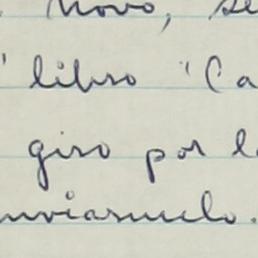 Novo, se
' libro "Ca
giro por l
nviarmelo.